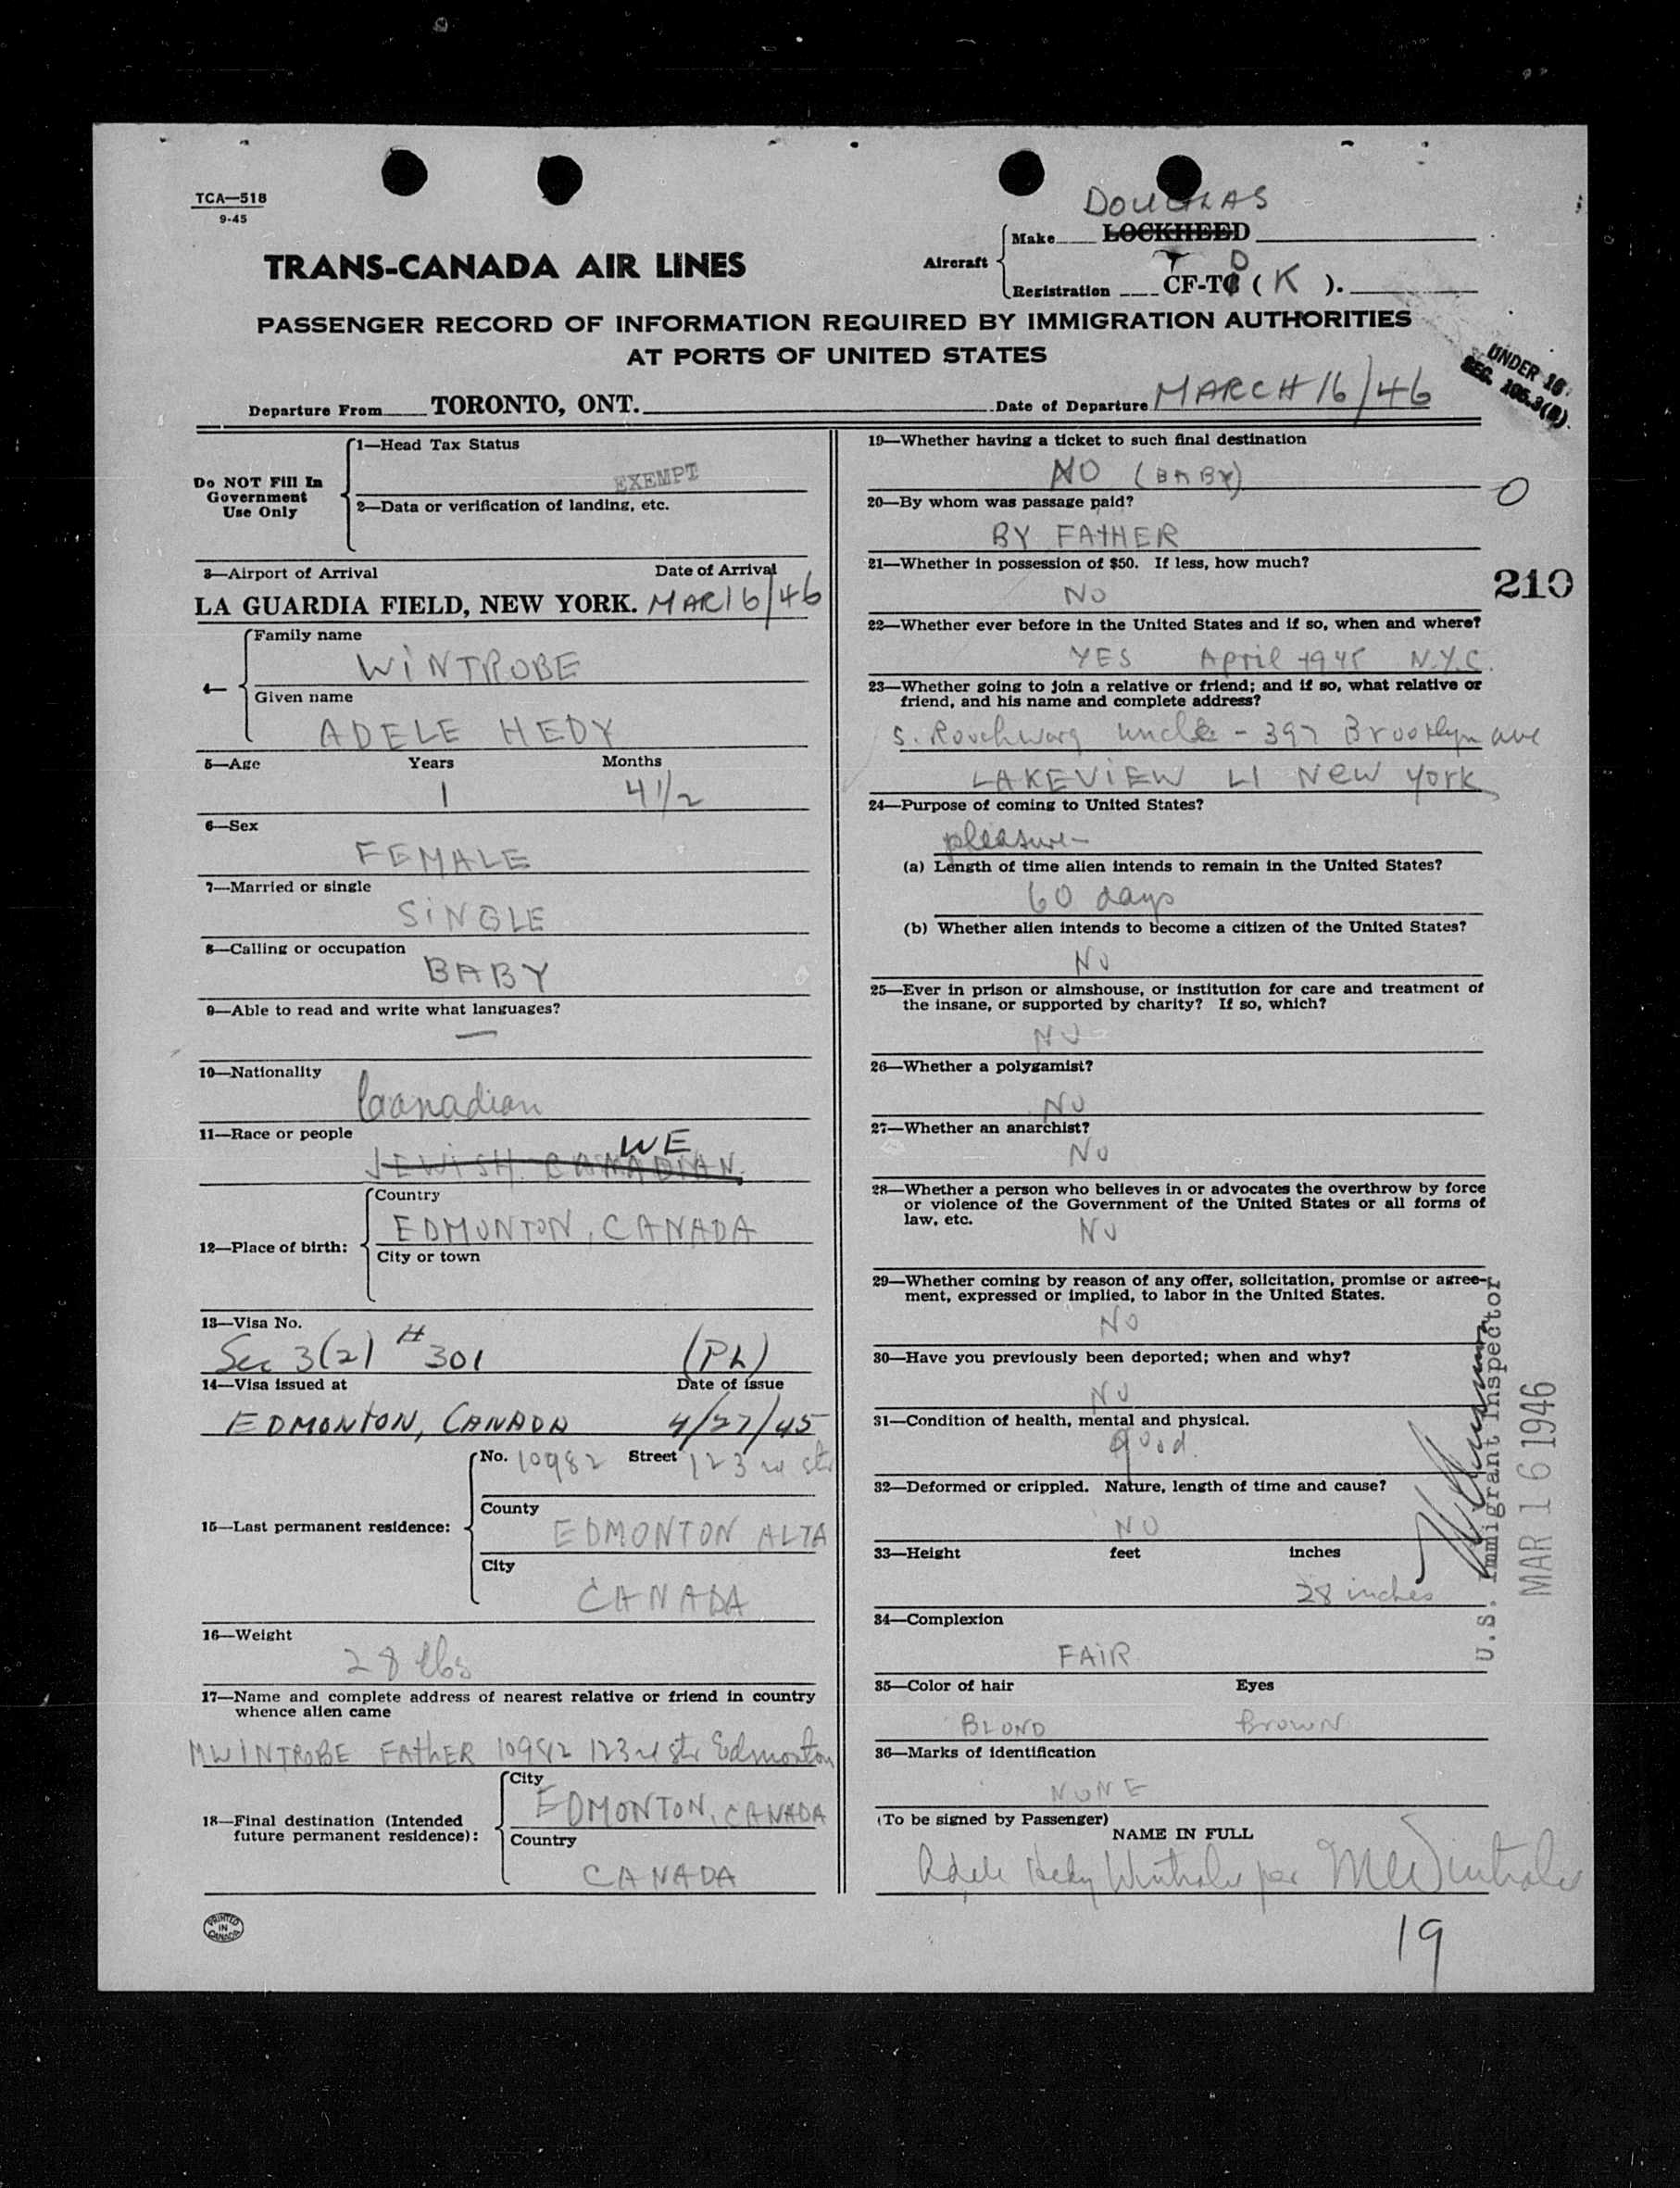 TCA—518
9-45
DOUGLAS
Aircraft
Make LOCKHEED
TRANS-CANADA AIR LINES
T D
Registration CF-TC ( K ).
PASSENGER RECORD OF INFORMATION REQUIRED BY IMMIGRATION AUTHORITIES
AT PORTS OF UNITED STATES
UNDER 16
SEC. 105.3(a).
Departure From TORONTO, ONT. Date of Departure MARCH 16/46
Do NOT Fill In
Government
Use Only
1—Head Tax Status
EXEMPT
2—Data or verification of landing, etc.
3—Airport of Arrival Date of Arrival
LA GUARDIA FIELD, NEW YORK. MAR 16/46
4—
Family name
WINTROBE
Given name
ADELE HEDY
5—Age Years Months
1 4 1/2
6—Sex
FEMALE
7—Married or single
SINGLE
8—Calling or occupation
BABY
9—Able to read and write what languages?
—
10—Nationality
Canadian
11—Race or people
WE
JEWISH CANADIAN.
12—Place of birth:
Country
EDMONTON, CANADA
City or town
13—Visa No.
Sec 3(2) # 301 (PL)
14—Visa issued at Date of issue
EDMONTON, CANADA 4/27/45
15—Last permanent residence:
No. 10982 Street 123 rd str
County
EDMONTON ALTA
City
CANADA
16—Weight
28 lbs
17—Name and complete address of nearest relative or friend in country
whence alien came
M WINTROBE FATHER 10982 123rd str Edmonton
18—Final destination (Intended
future permanent residence):
City
EDMONTON, CANADA
Country
CANADA
PRINTED
IN
CANADA
19—Whether having a ticket to such final destination
NO (BABY)
0
20—By whom was passage paid?
BY FATHER
21—Whether in possession of $50. If less, how much?
NO
210
22—Whether ever before in the United States and if so, when and where?
YES April 1945 N.Y.C.
23—Whether going to join a relative or friend; and if so, what relative or
friend, and his name and complete address?
S. Rauchwarg uncle - 397 Brooklyn ave
LAKEVIEW LI New York
24—Purpose of coming to United States?
pleasure-
(a) Length of time alien intends to remain in the United States?
60 days
(b) Whether alien intends to become a citizen of the United States?
No
25—Ever in prison or almshouse, or institution for care and treatment of
the insane, or supported by charity? If so, which?
NO
26—Whether a polygamist?
NO
27—Whether an anarchist?
No
28—Whether a person who believes in or advocates the overthrow by force
or violence of the Government of the United States or all forms of
law, etc.
NO
29—Whether coming by reason of any offer, solicitation, promise or agree-
ment, expressed or implied, to labor in the United States.
NO
30—Have you previously been deported; when and why?
NO
31—Condition of health, mental and physical.
good.
32—Deformed or crippled. Nature, length of time and cause?
NO
33—Height feet inches
28 inches
34—Complexion
FAIR
35—Color of hair Eyes
BLOND Brown
36—Marks of identification
NONE
(To be signed by Passenger)
NAME IN FULL
Adele Hedy Wintrobe per M Wintrobe
U.S. Immigrant Inspector
MAR 16 1946
19